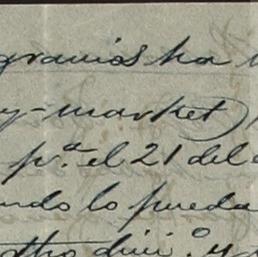 gravios ha
y-market)
p.ª el 21 del
ndo lo pueda
dho dini.º y